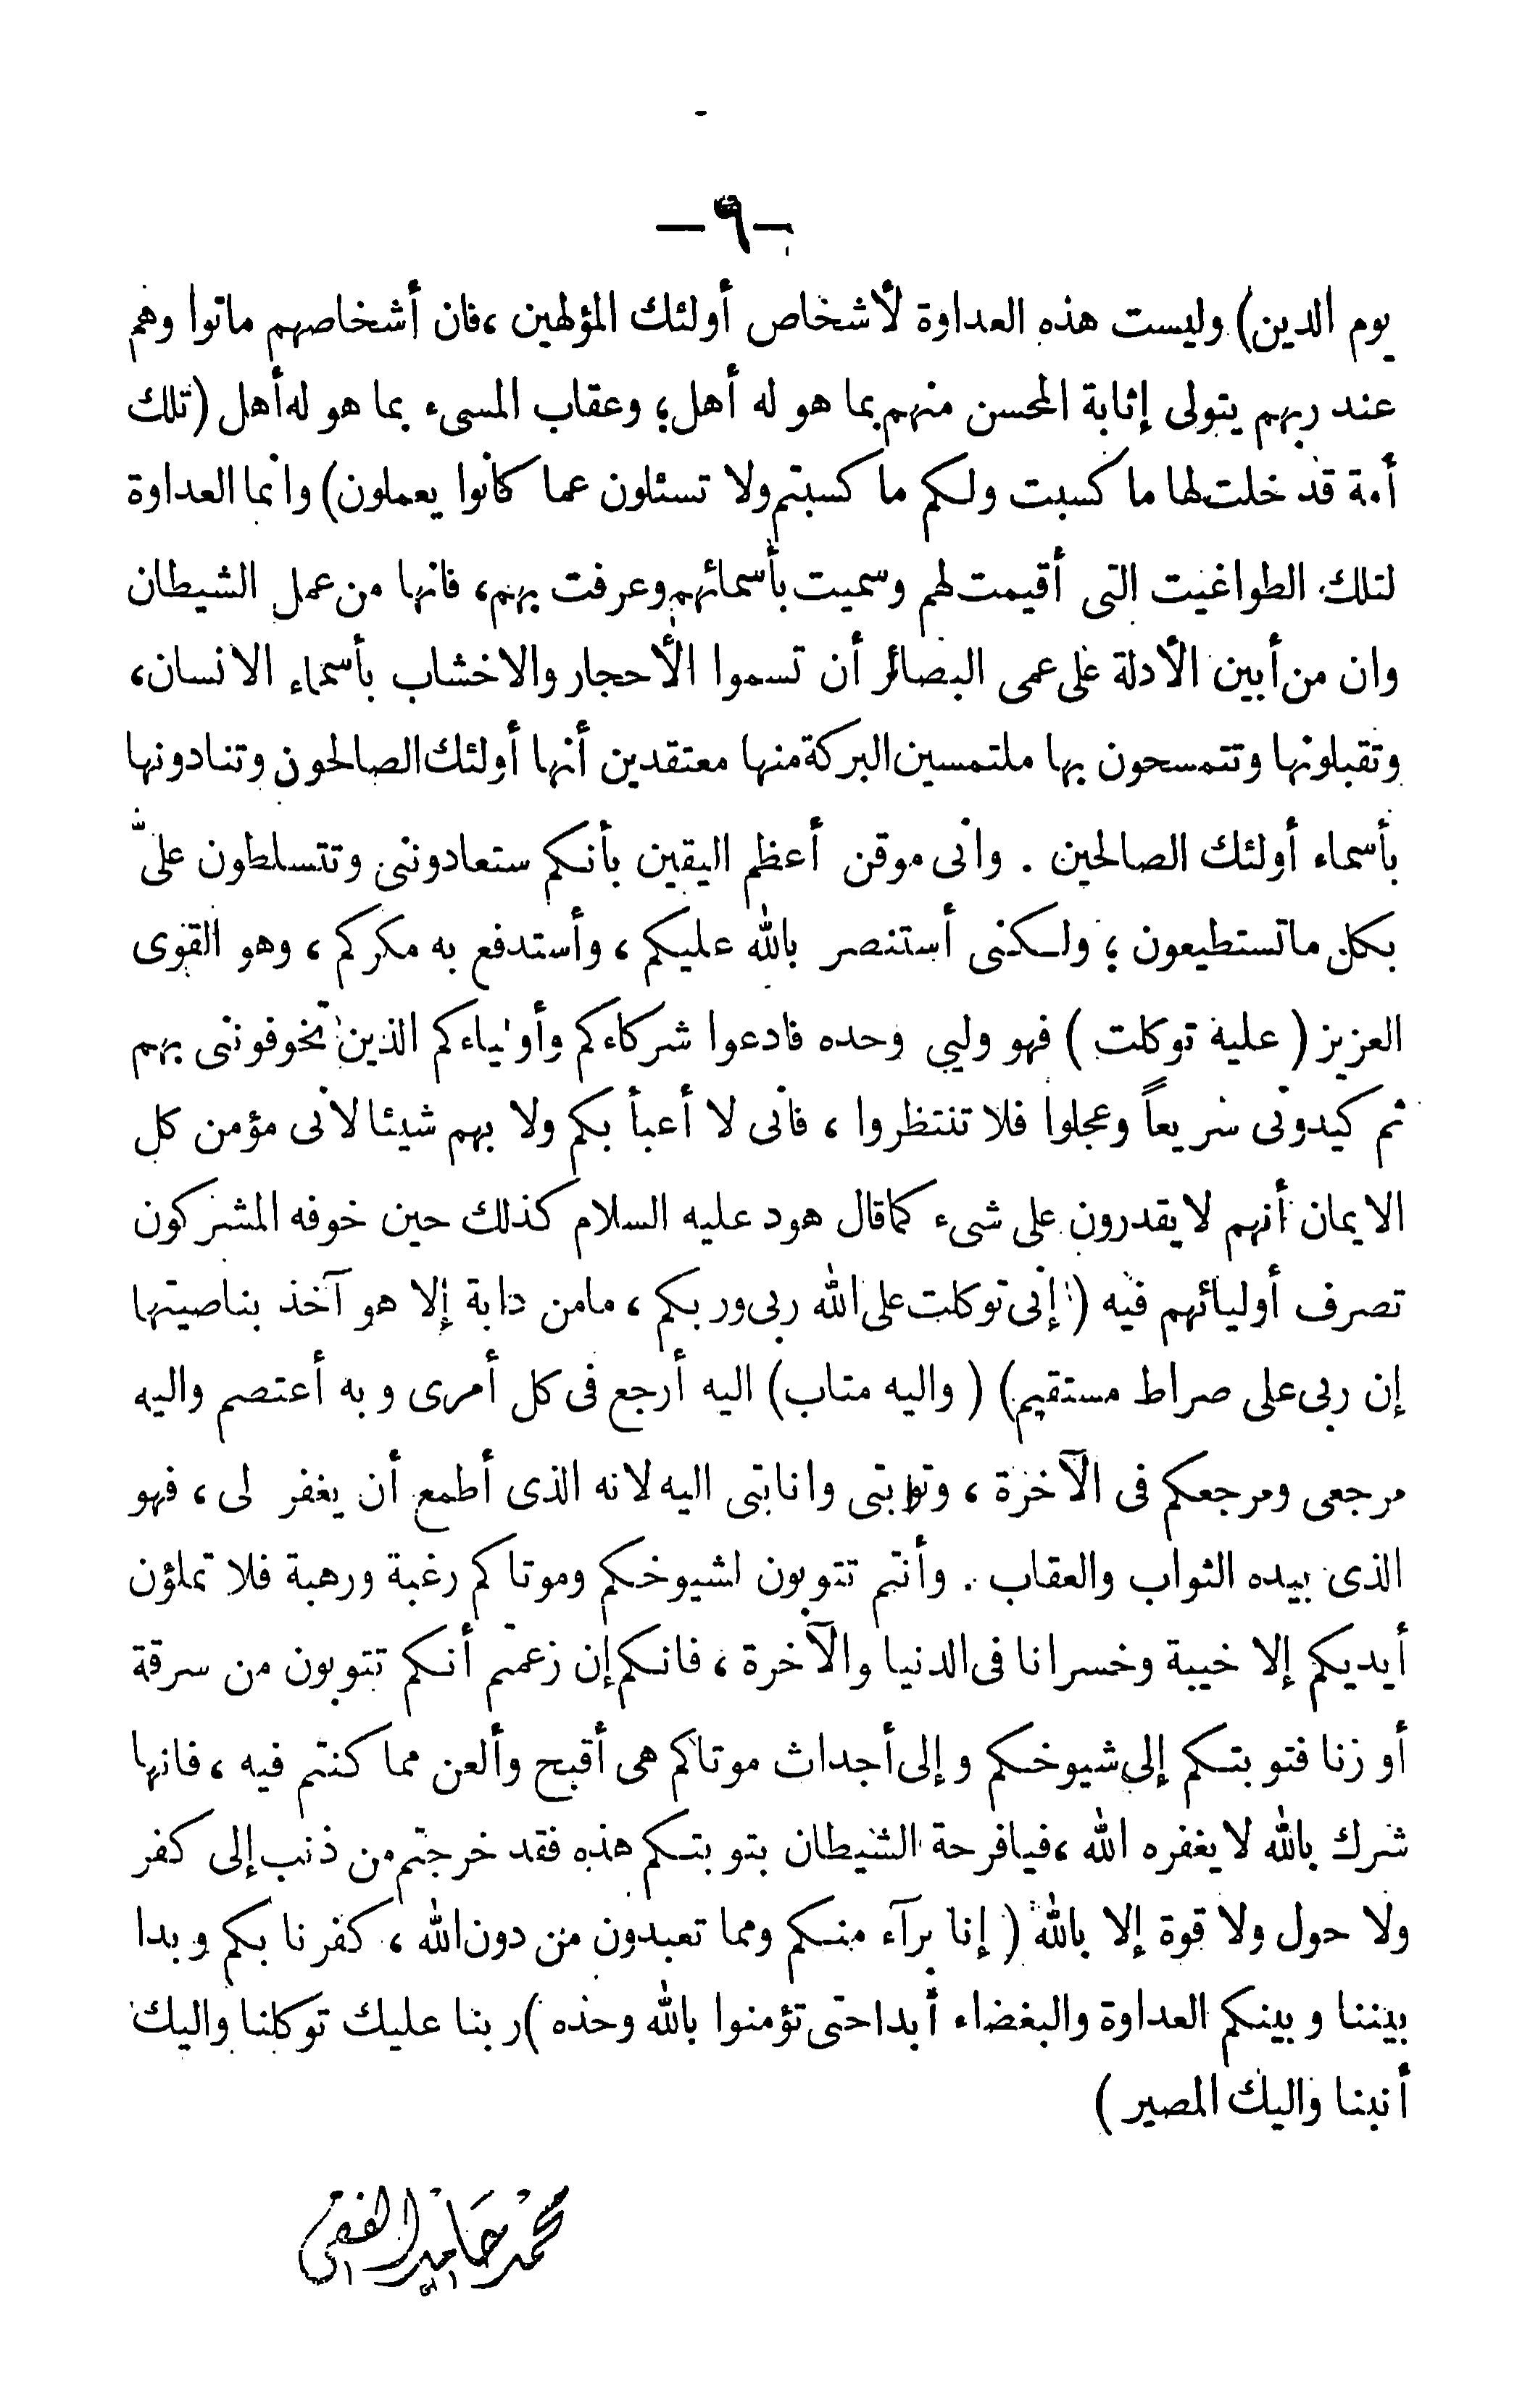 — ٩ —
يوم الدين) وليست هذه العداوة لأشخاص أولئك المؤلهين ، فان أشخاصهم ماتوا وهم
عند ربهم يتولى إثابة المحسن منهم بما هو له أهل ؛ وعقاب المسىء بما هو له أهل (تلك
أمة قد خلت لها ما كسبت ولكم ما كسبتم ولا تسئلون عما كانوا يعملون) وانما العداوة
لتلك الطواغيت التى أقيمت لهم وسميت بأسمائهم وعرفت بهم ، فانها من عمل الشيطان
وان من أبين الأدلة على عمى البصائر أن تسموا الأحجار والاخشاب بأسماء الانسان ،
وتقبلونها وتتمسحون بها ملتمسين البركة منها معتقدين أنها أولئك الصالحون وتنادونها
بأسماء أولئك الصالحين . وانى موقن أعظم اليقين بأنكم ستعادوننى وتتسلطون علىّ
بكل ماتستطيعون ؛ ولكنى أستنصر بالله عليكم ، وأستدفع به مكركم ، وهو القوى
العزيز ( عليه توكلت ) فهو وليي وحده فادعوا شركاءكم وأولياءكم الذين تخوفوننى بهم
ثم كيدونى سريعاً وعجلوا فلا تنتظروا ، فانى لا أعبأ بكم ولا بهم شيئا لانى مؤمن كل
الايمان أنهم لايقدرون على شىء كما قال هود عليه السلام كذلك حين خوفه المشركون
تصرف أوليائهم فيه ( إنى توكلت على الله ربى وربكم ، مامن دابة إلا هو آخذ بناصيتها
إن ربى على صراط مستقيم) ( واليه متاب) اليه أرجع فى كل أمرى وبه أعتصم واليه
مرجعى ومرجعكم فى الآخرة ، وتوبتى وانابتى اليه لانه الذى أطمع أن يغفر لى ، فهو
الذى بيده الثواب والعقاب . وأنتم تتوبون لشيوخكم وموتاكم رغبة ورهبة فلا تملؤن
أيديكم إلا خيبة وخسرانا فى الدنيا والآخرة ، فانكم إن زعمتم أنكم تتوبون من سرقة
أو زنا فتوبتكم إلى شيوخكم وإلى أجداث موتاكم هى أقبح وألعن مما كنتم فيه ، فانها
شرك بالله لايغفره الله ، فيافرحة الشيطان بتوبتكم هذه فقد خرجتم من ذنب إلى كفر
ولا حول ولا قوة إلا بالله ( إنا برآء منكم ومما تعبدون من دون الله ، كفرنا بكم وبدا
بيننا وبينكم العداوة والبغضاء أبدا حتى تؤمنوا بالله وحده ) ربنا عليك توكلنا واليك
أنبنا واليك المصير )
محمد حامد الفقى